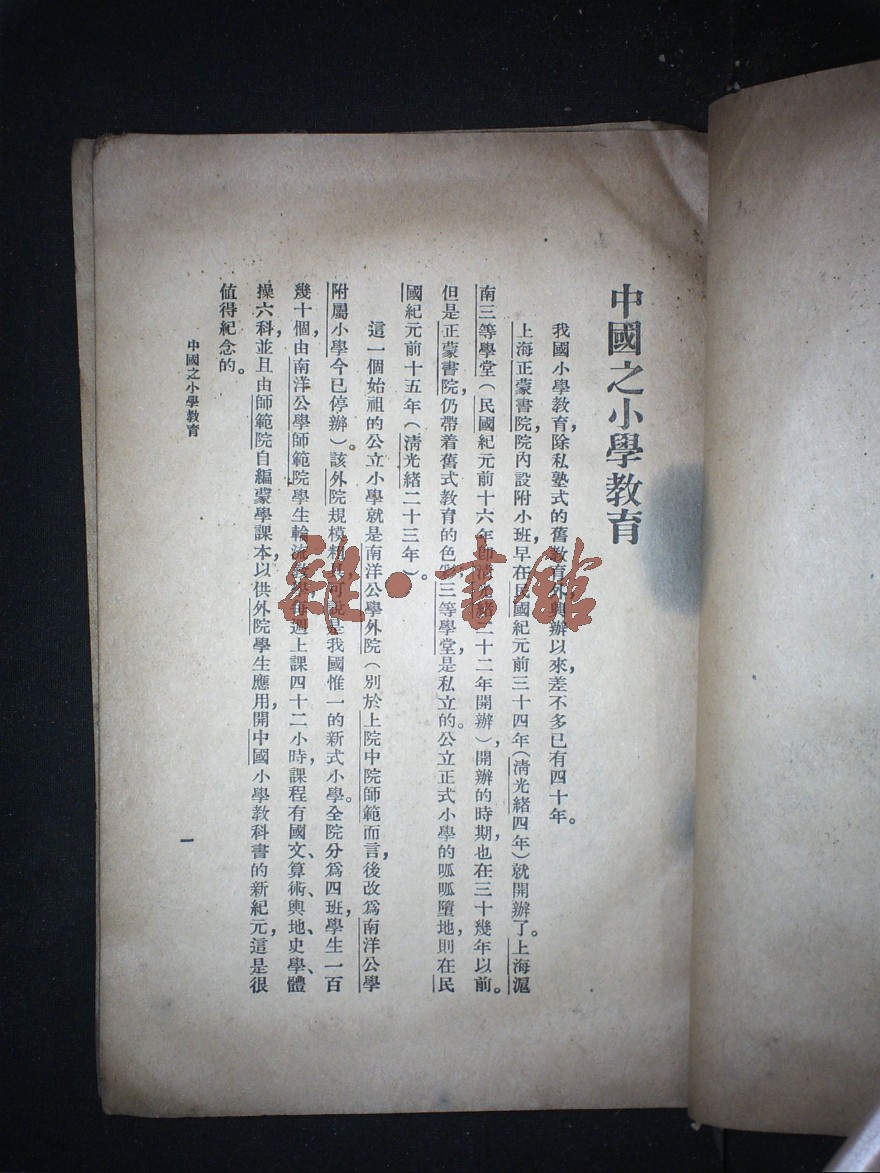 中國之小學教育
我國小學教育，除私塾式的舊教育外興辦以來，差不多已有四十年。
上海正蒙書院，院內設附小班，早在民國紀元前三十四年（清光緒四年）就開辦了。上海滬
南三等學堂（民國紀元前十六年卽清光緒二十二年開辦），開辦的時期，也在三十幾年以前。
但是正蒙書院，仍帶着舊式教育的色彩，三等學堂，是私立的。公立正式小學的呱呱墮地，則在民
國紀元前十五年（清光緒二十三年）。
這一個始祖的公立小學就是南洋公學外院（別於上院中院師範而言，後改爲南洋公學
附屬小學今已停辦）。該外院規模粗具，可說是我國惟一的新式小學。全院分爲四班，學生一百
幾十個，由南洋公學師範院學生輪流教學，每週上課四十二小時，課程有國文、算術、輿地、史學、體
操六科，並且由師範院自編蒙學課本，以供外院學生應用，開中國小學教科書的新紀元，這是很
値得紀念的。
中國之小學教育
一
雜·書館